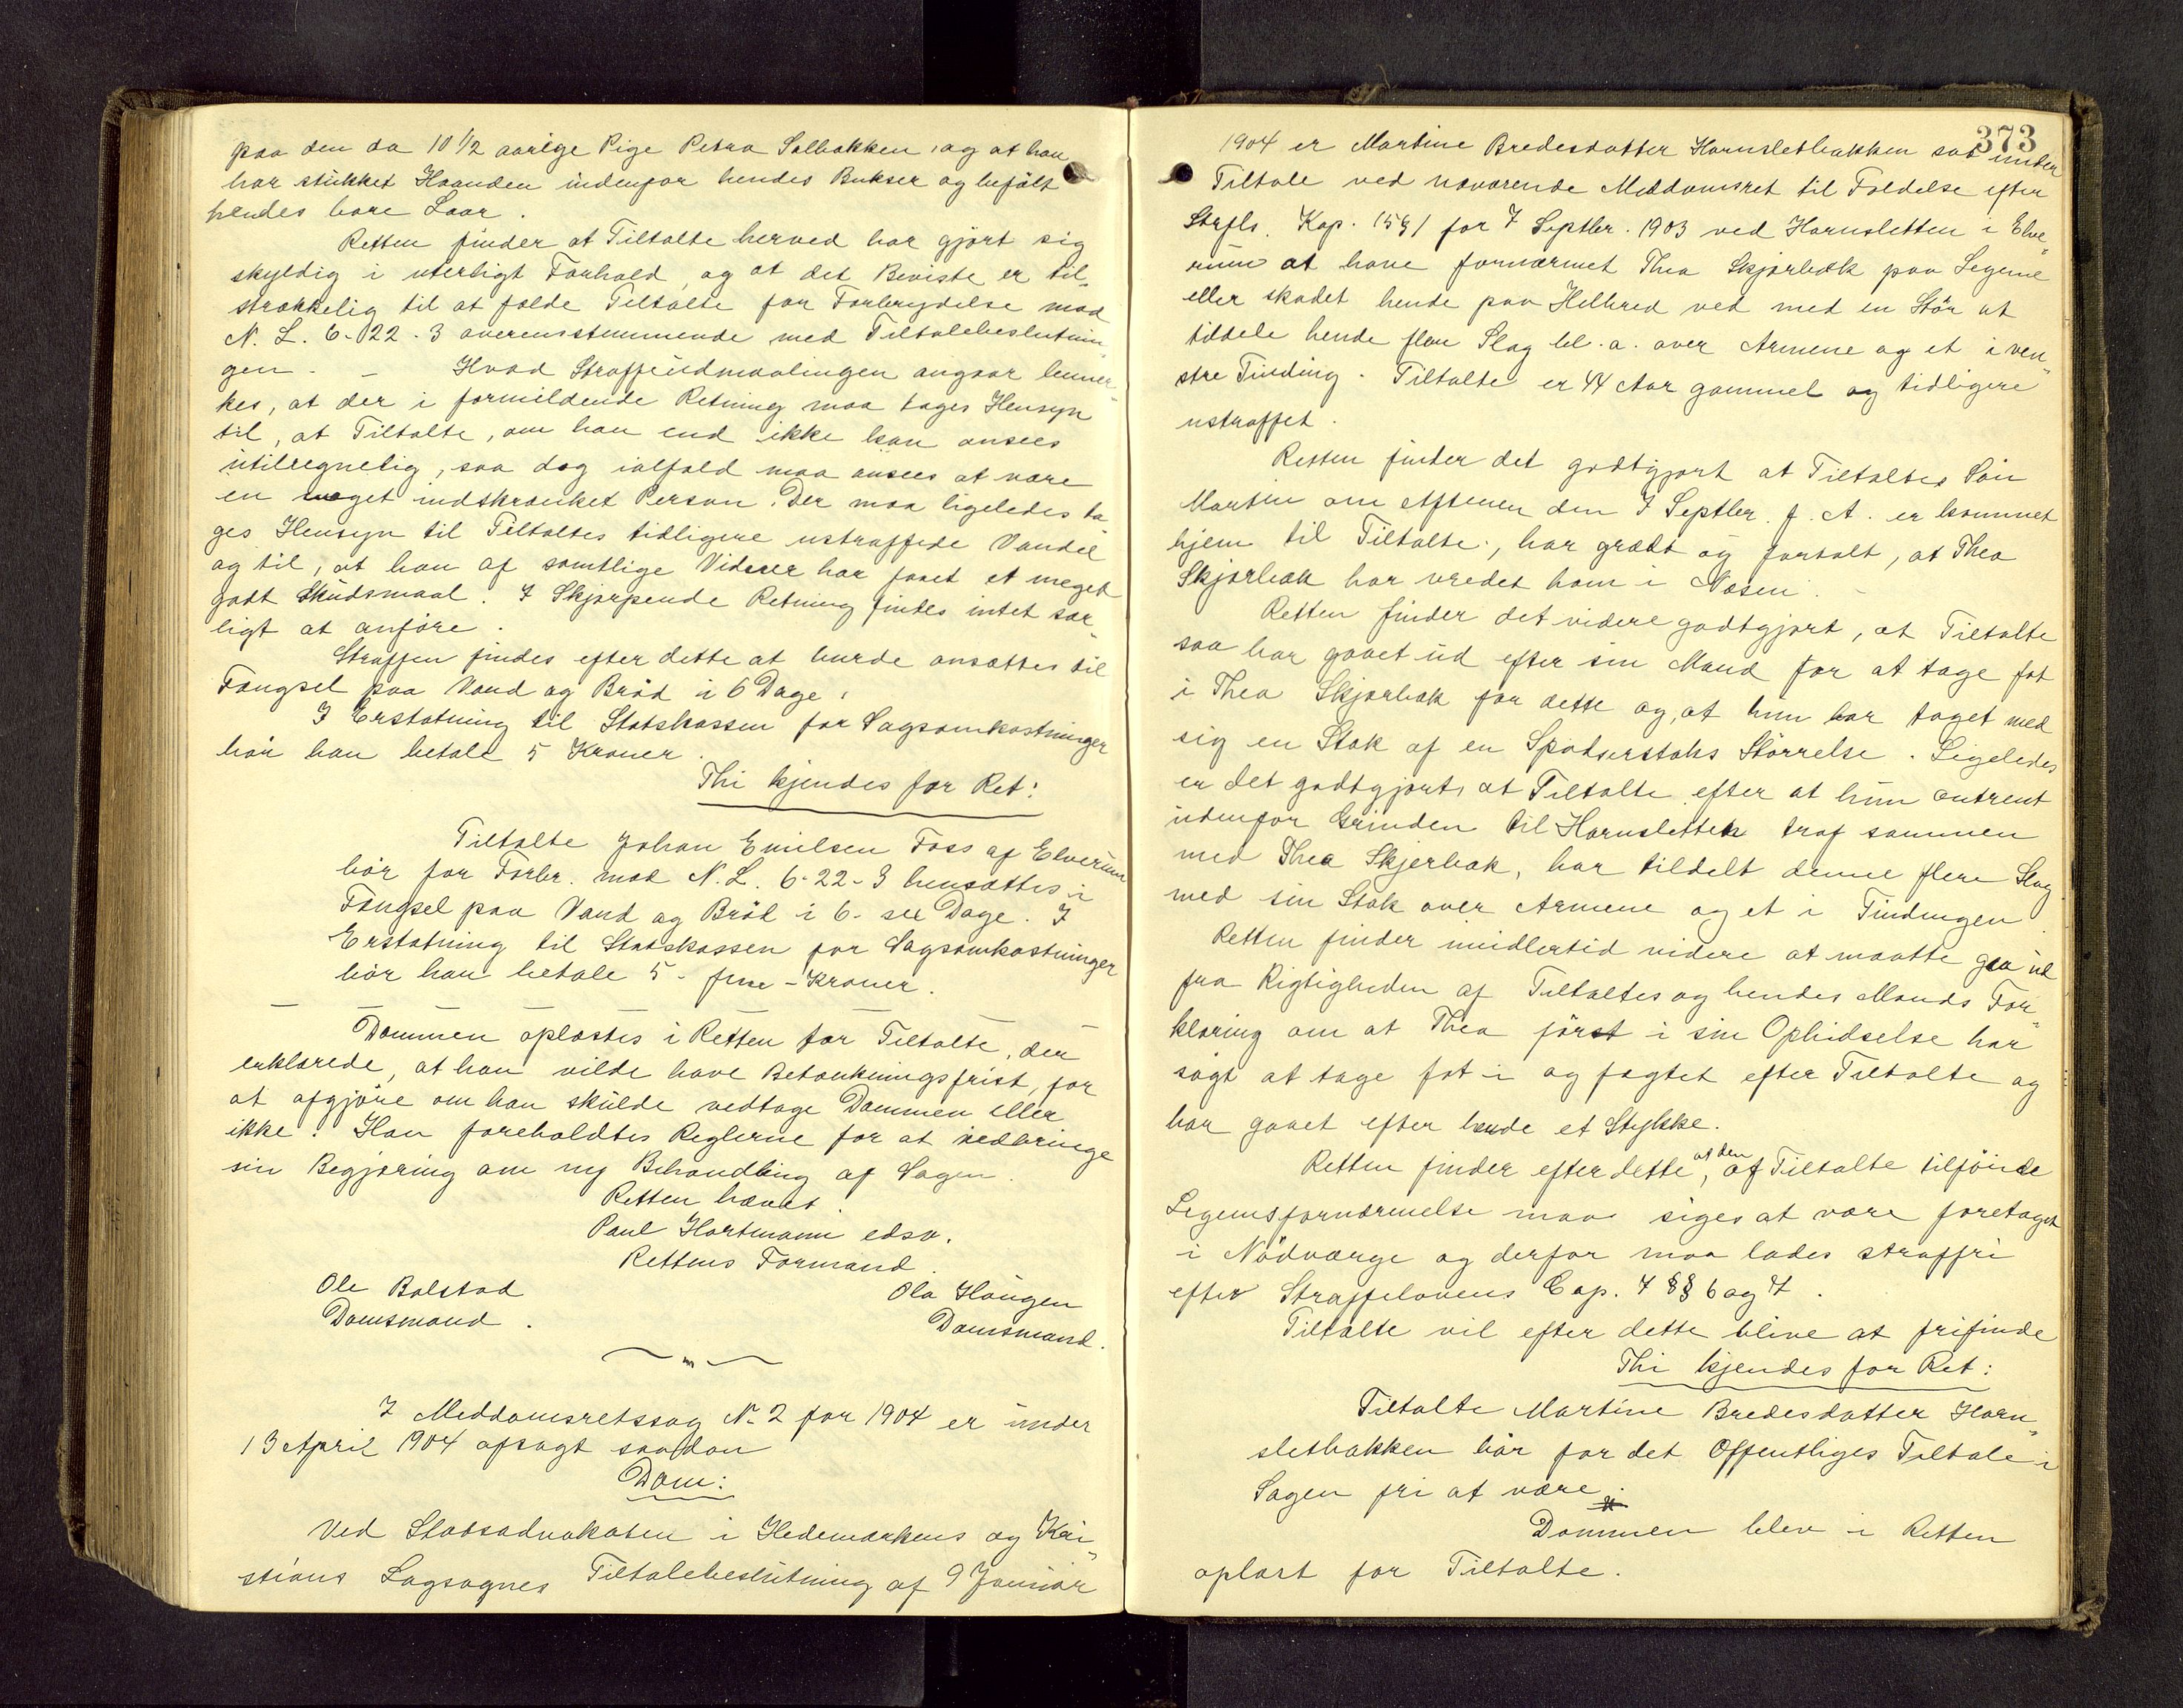 paa den da 10 1/2 aarige Pige Petra Solbakken, og at han
har stukket Haanden indenfor hendes Bukser og befölt
hendes bare Laar.
Retten finder at Tiltalte herved har gjort sig
skyldig i uterligt Forhold, og at det Beviste er til„
strækkelig til at fælde Tiltalte for Forbrydelse mod
N. L. 6-22-3 overensstemmende med Tiltalebeslutnin„
gen. - Hvad Straffeudmaalingen angaar bemær„
kes, at der i formildende Retning maa tages Hensyn
til, at Tiltalte, om han end ikke kan ansees
utilregnelig, saa dog ialfald maa ansees at være
en meget indskrænket Person. Der maa ligeledes ta„
ges Hensyn til Tiltaltes tidligere ustraffede Vandel
og til, at han af samtlige Vidner har faaet et meget
godt Skudsmaal. I Skjærpende Retning findes intet sær„
ligt at anföre.
Straffen findes efter dette at burde ansættes til
Fængsel paa Vand og Bröd i 6 Dage.
I Erstatning til Statskassen for Sagsomkostninger
bör han betale 5 Kroner.
Thi kjendes for Ret:
Tiltalte Johan Emilsen Foss af Elverum
bör for Forbr. mod N. L. 6-22-3 hensættes i
Fængsel paa Vand og Bröd i 6- sex Dage. I
Erstatning til Statskassen for Sagsomkostninger
bör han betale 5- fem - Kroner.
Dommen oplæstes i Retten for Tiltalte, der
erklærede, at han vilde have Betænkningsfrist, for
at afgjöre om han skulde vedtage Dommen eller
ikke. Han foreholdtes Reglerne for at nedbringe
sin Begjæring om ny Behandling af Sagen.
Retten hævet.
Paul Hartmann edsv.
Rettens Formand.
Ole Bolstad Ola Haugen
Domsmand. Domsmand.
I Meddomsretssag No 2 for 1904 er under
13 April 1904 afsagt saadan
Dom:
Ved Statsadvokaten i Hedemarkens og Kri„
stians Lagsognes Tiltalebeslutning af 9 Januar
373
1904 er Martine Bredesdatter Hornsletbakken sat under
Tiltale ved nærværende Meddomsret til Fældelse efter
Strfls. Kap. 15 § 1 for 7 Septbr. 1903 ved Hornsletten i Elve„
rum at have fornærmet Thea Skjærbæk paa Legeme
eller skadet hende paa Helbred ved med en Stör at
tildele hende flere Slag bl. a. over Armene og et i ven„
stre Tinding. Tiltalte er 44 Aar gammel og tidligere
ustraffet.
Retten finder det godtgjort at Tiltaltes Sön
Martin om Aftenen den 7 Septbr. f. A. er kommet
hjem til Tiltalte, har grædt og fortalt, at Thea
Skjærbæk har vredet ham i Næsen.
Retten finder det videre godtgjort, at Tiltalte
saa har gaaet ud efter sin Mand for at tage fat
i Thea Skjærbæk for dette og, at hun har taget med
sig en Stok af en Spadserstoks Störrelse. Ligeledes
er det godtgjort, at Tiltalte efter at hun omtrent
udenfor Grinden til Hornsletten traf sammen
med Thea Skjerbæk, har tildelt denne flere Slag
med sin Stok over Armene og et i Tindingen.
Retten finder imidlertid videre at maatte gaa ud
fra Rigtigheden af Tiltaltes og hendes Mands For„
klaring om at Thea först i sin Ophidselse har
sögt at tage fat i og fægtet efter Tiltalte og
har gaaet efter hende et Stykke.
Retten finder efter dette, at den af Tiltalte tilföiede
Legemsfornærmelse maa siges at være foretaget
i Nödværge og derfor maa lades straffri
efter Straffelovens Cap. 7 §§ 6 og 7.
Tiltalte vil efter dette blive at frifinde
Thi kjendes for Ret:
Tiltalte Martine Bredesdatter Horn„
sletbakken bör for det Offentliges Tiltale i
Sagen fri at være.
Dommen blev i Retten
oplæst for Tiltalte.